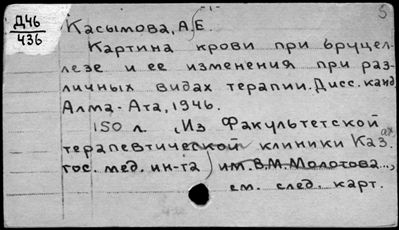 Д46
436
5
Касымова, А.Е.
Картина крови при бруцел-
лезе и ее изменения при раз-
личных видах терапии. Дисс. канд
Алма-Ата, 1946.
150 л. (Из Факультетской
терапевтической клиники Каз. ах
гос. мед. ин-та) им. В.М. Молотова..,
см. след. карт.